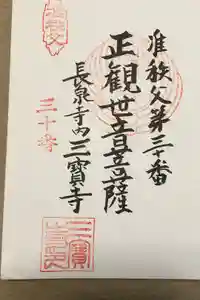 准秩父第三十番
正観世音菩薩
長泉寺内三寳寺
三十番
三寳